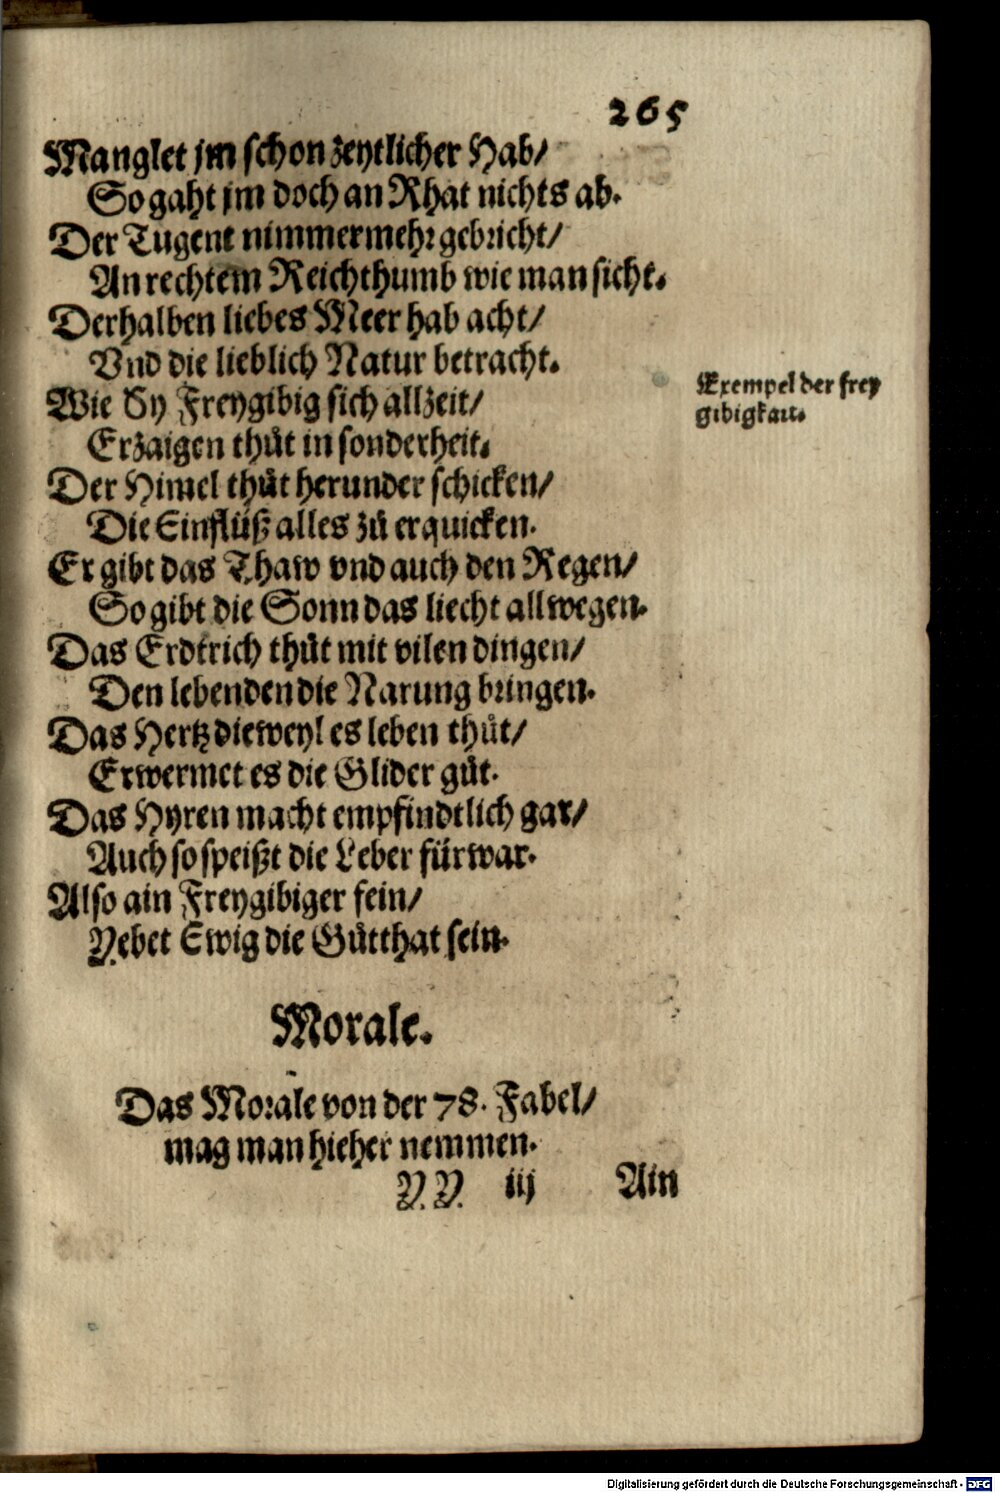 265
Manglet jm schon zeytlicher Hab/
So gaht jm doch an Rhat nichts ab.
Der Tugent nimmermehr gebricht/
An rechtem Reichthumb wie man sicht.
Derhalben liebes Meer hab acht/
Vnd die lieblich Natur betracht.
Exempel der frey
gibigkait.
Wie Sy Freygibig sich allzeit/
Erzaigen thůt in sonderheit.
Der Himel thůt herunder schicken/
Die Einflüß alles zů erquicken.
Er gibt das Thaw vnd auch den Regen/
So gibt die Sonn das liecht allwegen.
Das Erdtrich thůt mit vilen dingen/
Den lebenden die Narung bringen.
Das Hertz dieweyl es leben thůt/
Erwermet es die Glider gůt.
Das Hyren macht empfindtlich gar/
Auch so speißt die Leber fürwar.
Also ain Freygibiger fein/
Yebet Ewig die Gůtthat sein.
Morale.
Das Morale von der 78. Fabel/
mag man hieher nemmen.
Y. Y. iij Ain
Digitalisierung gefördert durch die Deutsche Forschungsgemeinschaft - DFG